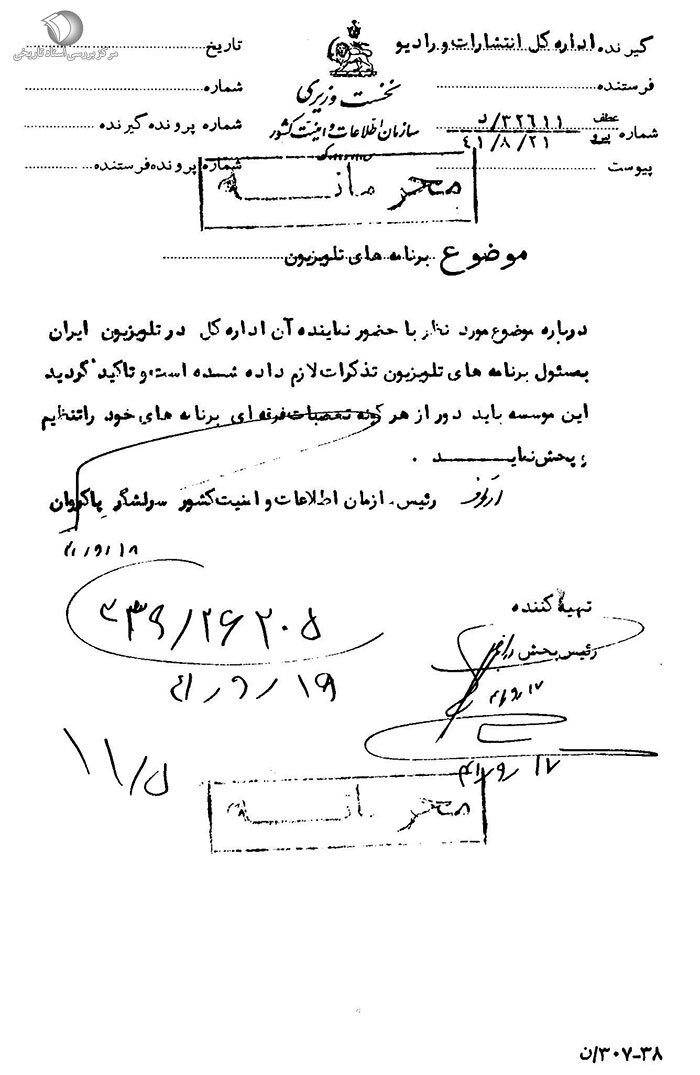 مرکز بررسی اسناد تاریخی
گیرنده اداره کل انتشارات و رادیو
فرستنده
شماره عطف پیرو ۳۲۶۱۱/د
۴۱/۸/۲۱
پیوست
نخست وزیری
سازمان اطلاعات و امنیت کشور
س.ا.و.ا.ک
تاریخ
شماره
شماره پرونده گیرنده
شماره پرونده فرستنده
محرمانه
موضوع برنامه های تلویزیون
درباره موضوع مورد نظر با حضور نماینده آن اداره کل در تلویزیون ایران
بمسئول برنامه های تلویزیون تذکرات لازم داده شده است و تاکید گردید
این موسسه باید دور از هر گونه تعصبات فرقه ای برنامه های خود را تنظیم
و پخش نمایـــــد .
رئیس سازمان اطلاعات و امنیت کشور سرلشگر پاکروان
از طرف
۴۱/۹/۱۸
تهیه کننده
رئیس بخش
۴۱/۹/۱۷
۳۳۹/۲۶۲۰۵
۴۱/۹/۱۹
۴۱/۹/۱۷
۱۱/۵
محرمانه
۳۰۷-۳۸/ن